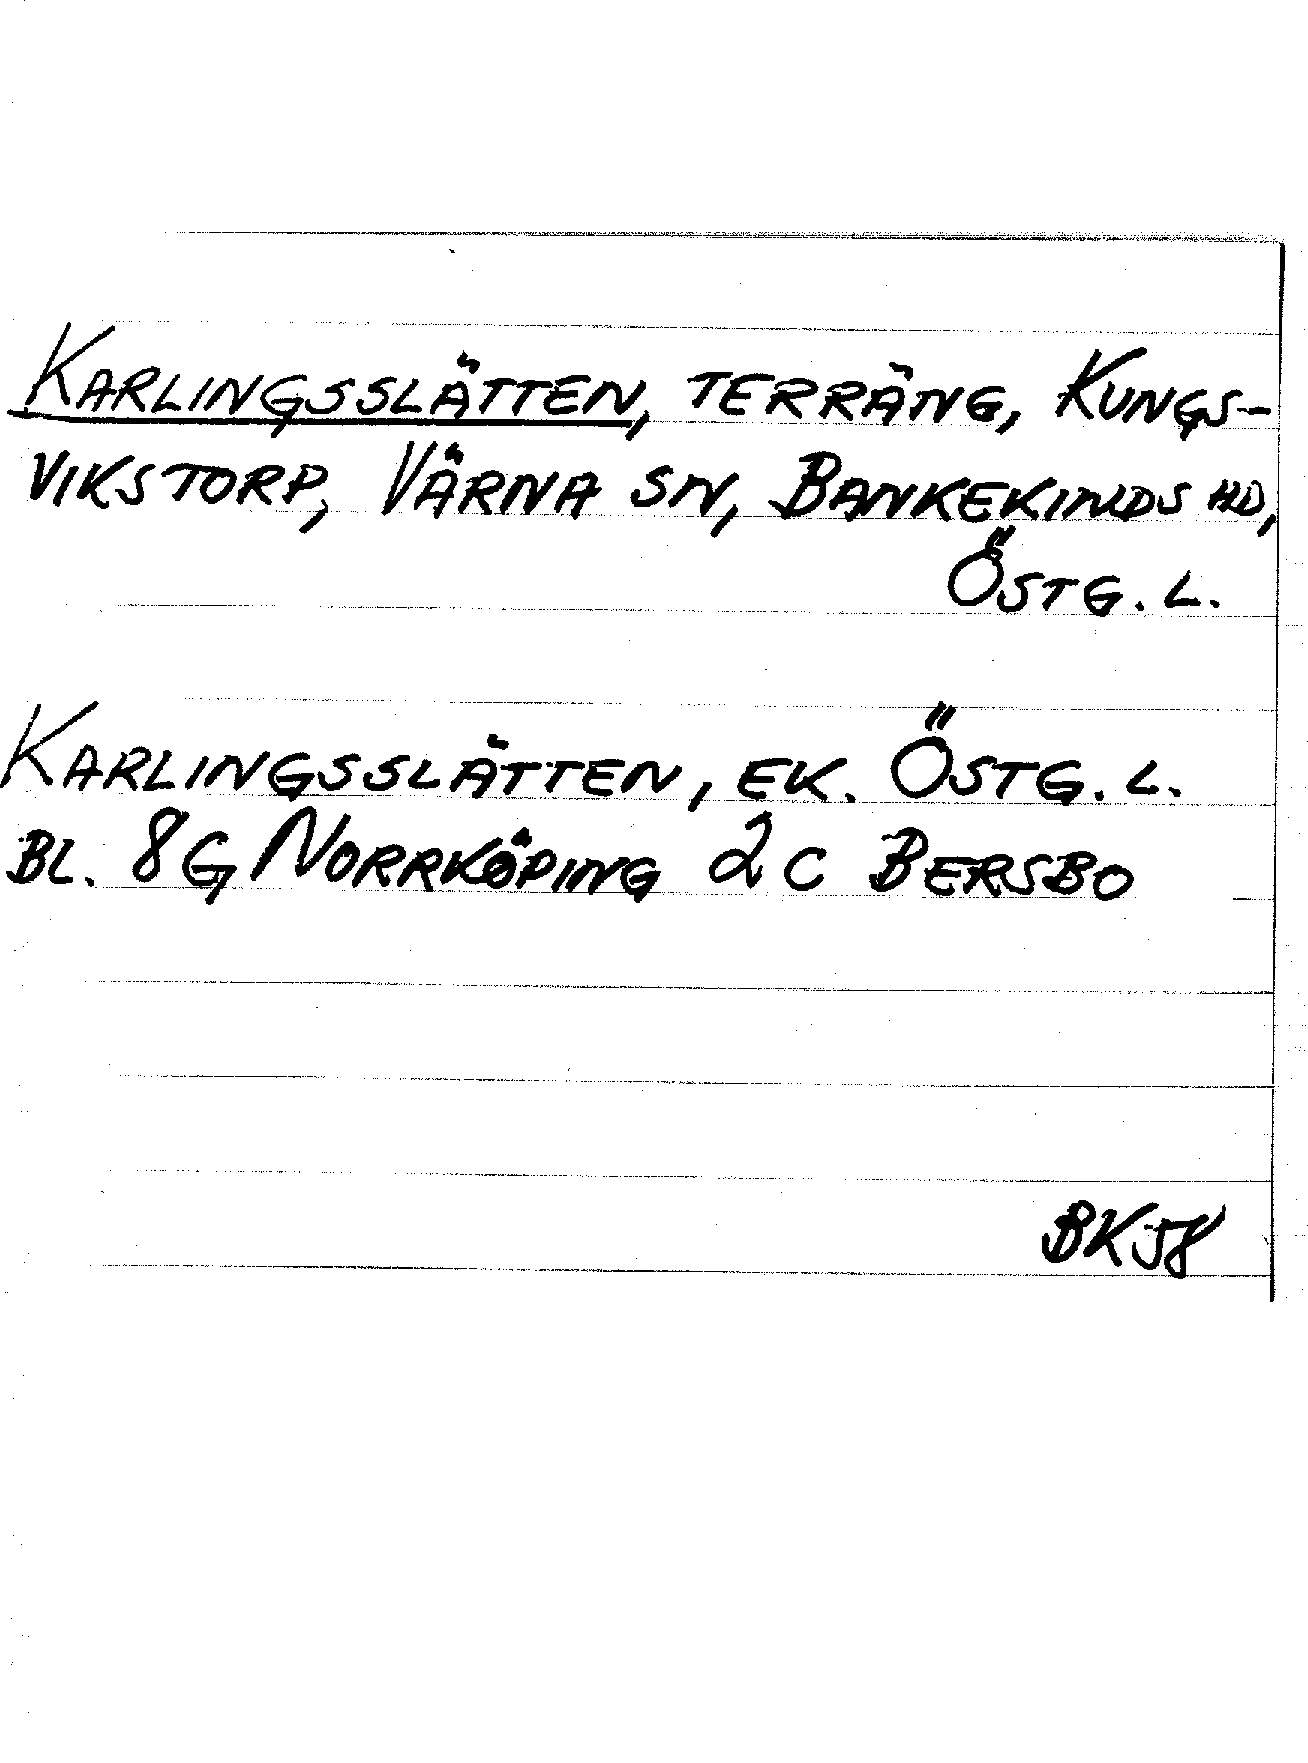 KARLINGSSLÄTTEN, TERRÄNG, KUNGS-
VIKSTORP, VÄRNA SN, BANKEKINDS HD,
ÖSTG. L.
KARLINGSSLÄTTEN, EK. ÖSTG. L.
BL. 8G NORRKÖPING 2C BERSBO
BK58